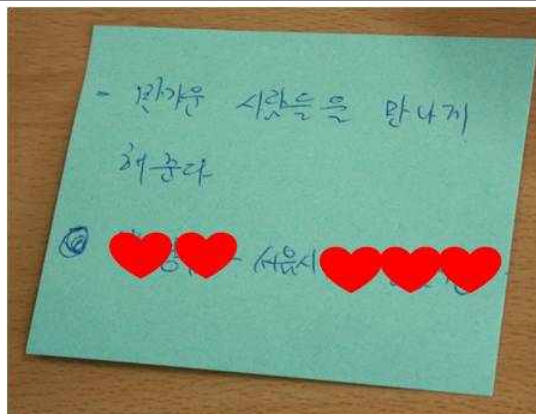 - 반가운 사람들을 만나게
해준다
서울시